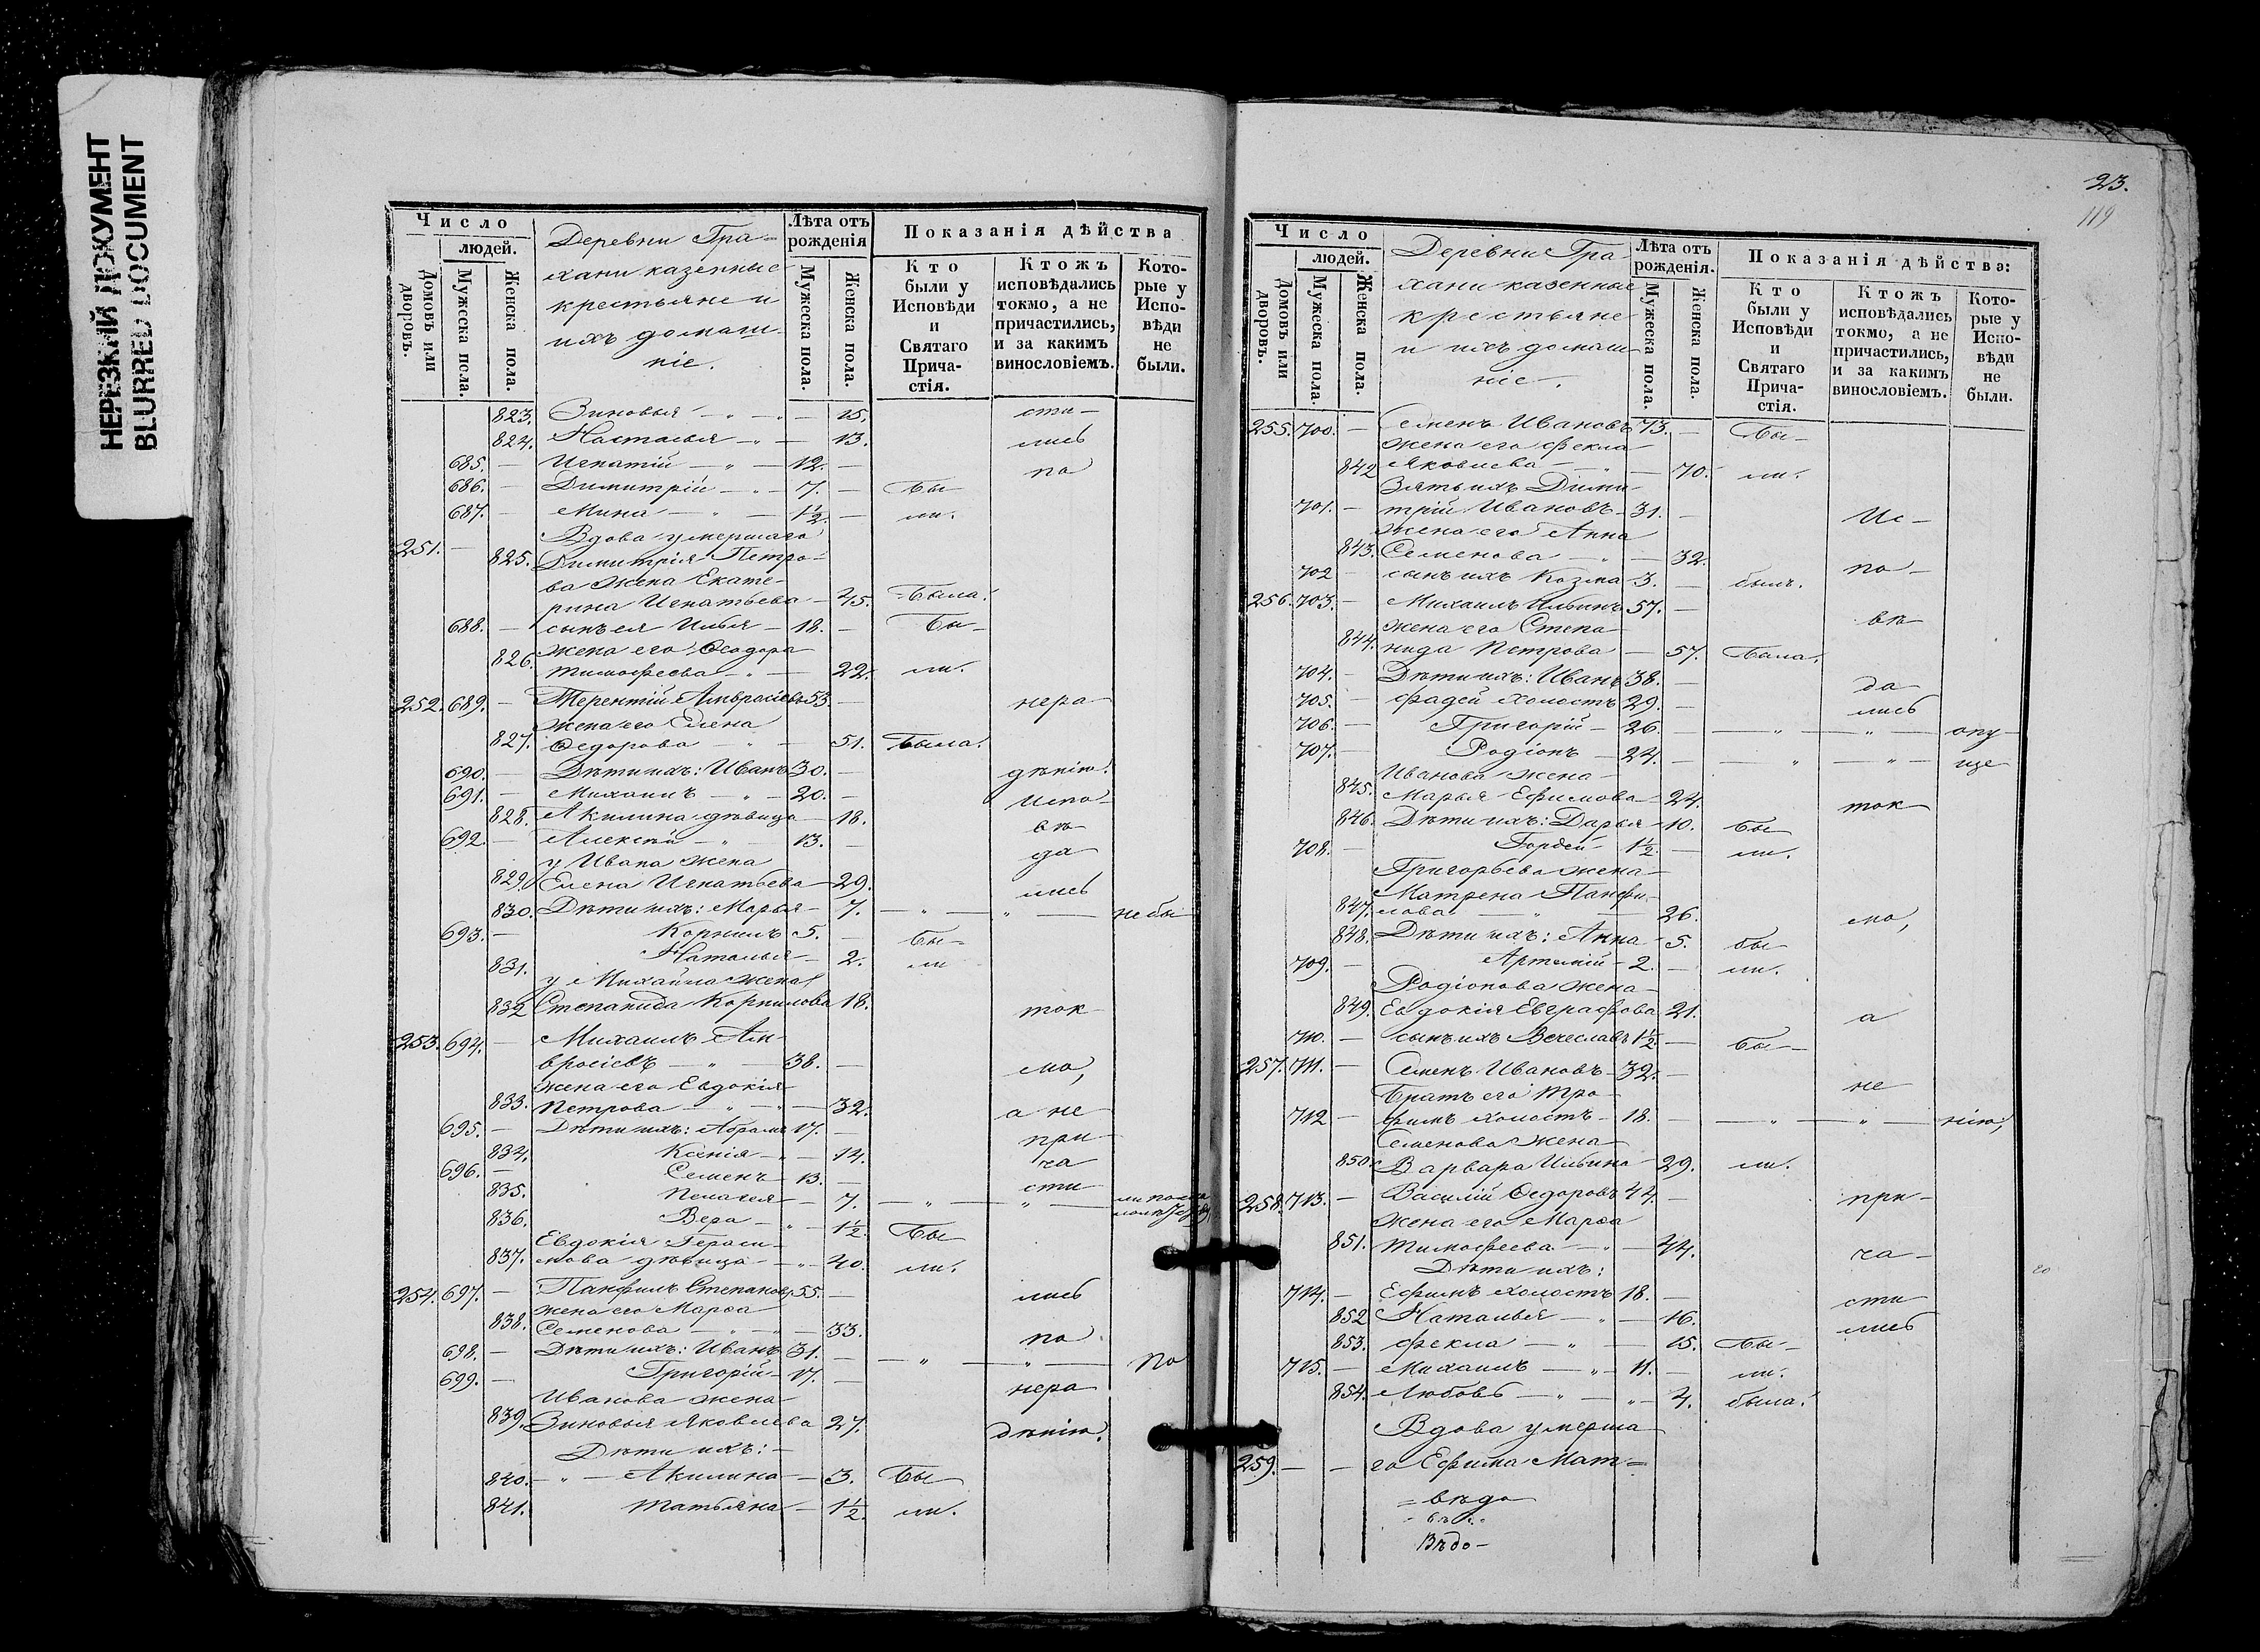 НЕРЕЗКИЙ ДОКУМЕНТ
BLURRED DOCUMENT
Число
людей.
Домовъ или дворовъ.
Мужеска пола.
Женска пола.
Деревни Гра-
хани казенные
крестьяне и
ихъ домаш-
ніе.
Лѣта отъ рожденія
Мужеска пола.
Женска пола.
Показанія дѣйства
Кто были у Исповѣди и Святаго Прича-стія.
Ктожъ исповѣдались токмо, а не причастились, и за какимъ винословіемъ.
Кото-рые у Испо-вѣди не были.
823. Зиновья — „ — 15. сти-
824. Настасья — „ — 13. лись
685. — Игнатій — „ — 12. — по
686. — Димитрій — „ — 7. — бы-
687. — Мина — „ — 1½. — ли.
251. — Вдова умершаго
825. Димитрія Петро-
ва жена Екате-
рина Игнатьева — 45. Была.
688. — сынъ ея Илья — 18. — Бы-
826. жена его Ѳеодора
Тимофеева — „ — 22. ли.
252. 689. — Терентій Амвросіевъ 53. — нера-
жена его Елена
827. Ѳедорова — „ — 51. была.
690. — Дѣти ихъ: Иванъ 30. — дѣнію.
691. — Михаилъ — „ — 20. — Испо-
828. Акилина дѣвица — 18. вѣ-
692. — Алексѣй — „ — 13. — да
у Ивана жена
829. Елена Игнатьева — 29. лись
830. Дѣти ихъ: Марья — 7. — „ — „ — не бы
693. — Корнилъ 5. — бы-
831. Наталья — 2. ли
у Михайла жена
832 Степанида Корнилова 18. ток-
253. 694. — Михаилъ Ам-
вросіевъ — „ — 38. — мо,
жена его Евдокія
833. Петрова — „ — 32. а не
695. — Дѣти ихъ: Абрамъ 17. — при-
834. Ксенія — „ — 14. ча
696. — Семенъ — 13. — сти
835. Пелагея — 7. — „ — „ —
836. Вера — „ — 1½ Бы
Евдокія Гераси-
837. мова дѣвица — „ — 40. ли.
254. 697. — Панфилъ Степановъ 55. — лись
жена его Марѳа
838. Семенова — „ — 33. по
698. — Дѣти ихъ: Иванъ 31. — „ — „ — по
699. — Григорій — 17. — нера
Иванова жена
839. Зиновья Яковлева 27. дѣнію.
Дѣти ихъ: —
840. — „ — Акилина — 3. Бы
841. Татьяна — 1½ ли.
23.
119
Число
людей.
Домовъ или дворовъ.
Мужеска пола.
Женска пола.
Деревни Гра-
хани казенные
крестьяне
и ихъ домаш-
ніе.
Лѣта отъ рожденія.
Мужеска пола.
Женска пола.
Показанія дѣйства:
Кто были у Исповѣди и Святаго Прича-стія.
Ктожъ исповѣдались токмо, а не причастились, и за какимъ винословіемъ.
Кото-рые у Испо-вѣди не были.
255. 700. — Семенъ Ивановъ 73. Бы-
жена его Фекла
842 Яковлева — „ — 70. ли.
Зять ихъ Дими-
701. — трій Ивановъ — 31. — Ис-
жена его Анна
843. Семенова — „ — 32.
702 — сынъ ихъ Козма 3. — былъ. по-
256. 703. — Михаилъ Ильинъ 57. — вѣ
жена его Степа-
844. нида Петрова — 57. была.
704. — Дѣти ихъ: Иванъ 38. — да
705. — Фадей холостъ 29. — лись
706. — Григорій — 26. — „ — „ — опу
707. — Родіонъ — 24. — „ — „ — ще
Иванова жена
845. Марья Ефимова — 24. ток
846. Дѣти ихъ: Дарья — 10. бы
708. — Гордей — 1½. — ли.
Григорьева жена
Матрена Панфи-
847. лова — „ — 26. мо,
848. Дѣти ихъ: Анна — 5. бы
709. — Артемій — 2. — ли.
Родіонова жена
849. Евдокія Евграфова 21. а
710. — сынъ ихъ Вечеславъ 1½ — бы-
257. 711. — Семенъ Ивановъ — 32. — не
Братъ его Тро-
712 — фимъ холостъ — 18. — „ — „ — нію,
Семенова жена
850. Варвара Ильина — 29. ли.
258. 713. — Василій Ѳедоровъ 44. — при-
жена его Марѳа
851. Тимофеева — „ — 44. ча-
Дѣти ихъ:
714. — Ефимъ холостъ 18. — сти
852 Наталья — „ — 16. лись
853. Фекла — „ — 15. Бы-
715. — Михаилъ — „ — 11. — ли.
854. Любовь — „ — „ — 4. была.
Вдова умерша
259. — — го Ефима Мат=
= вѣдо
Вѣдо-